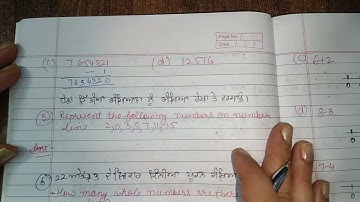 Page No.
Date
(c) 7654321 (d) 12576 (c) 6+2
- 1
7654320
ਹੇਠਾਂ ਦਿੱਤੀਆਂ ਸੰਖਿਆਵਾਂ ਨੂੰ ਸੰਖਿਆ ਰੇਖਾ ਤੇ ਦਰਸਾਓ।
⑤ Represent the following numbers on number (d) 3-3
line 2, 0, 3, 5, 7, 11, 15
⑥ 22 ਅਤੇ ਦੇ ਵਿਚਕਾਰ ਕਿੰਨੀਆਂ ਪੂਰਨ ਸੰਖਿਆ
How many whole numbers are there